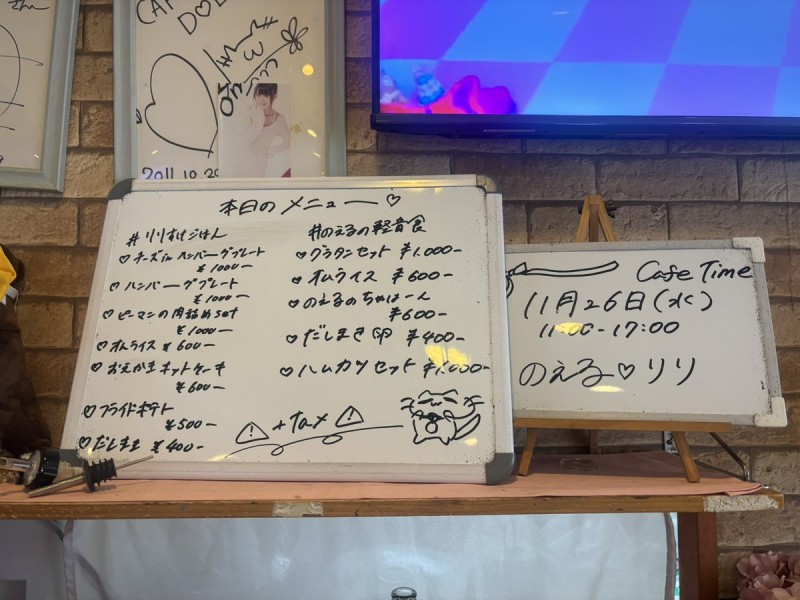 2011.10.29
本日のメニュー♡
#りりすけごはん
♡チーズinハンバーグプレート
¥1000ー
♡ハンバーグプレート
¥1000ー
♡ピーマンの肉詰めset
¥1000ー
♡オムライス ¥600ー
♡おえかきホットケーキ
¥600ー
♡フライドポテト
¥500ー
♡だしまき ¥400ー
#のえるの軽音食
♡グラタンセット ¥1.000ー
♡オムライス ¥600ー
♡のえるのちゃはーん
¥600ー
♡だしまき卵 ¥400ー
♡ハムカツセット ¥1.000ー
⚠+tax⚠
Cafe Time
11月26日(水)
11:00-17:00
のえる♡リリ